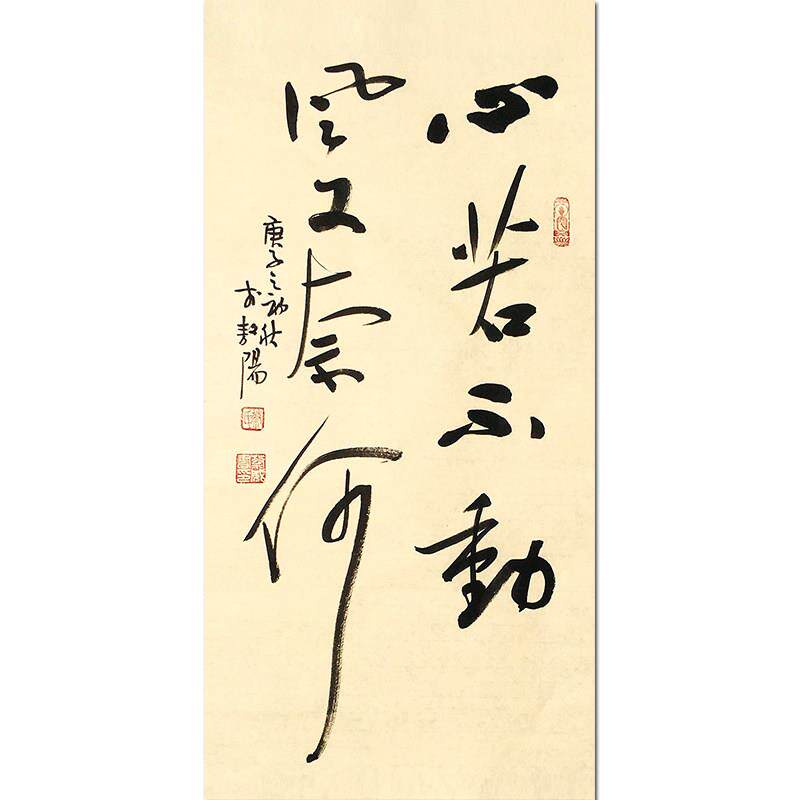 心若不動
風又奈何
庚子之初秋
於
陽